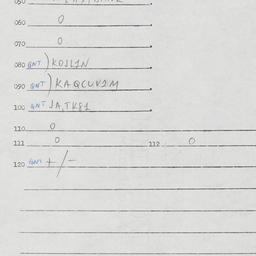 060 0
070 0
080 GNT ) KOJL1N
090 GNT ) KAQCUV1M
100 GNT JA,TK81
110 0
111 0 112 0
120 GNT +/-